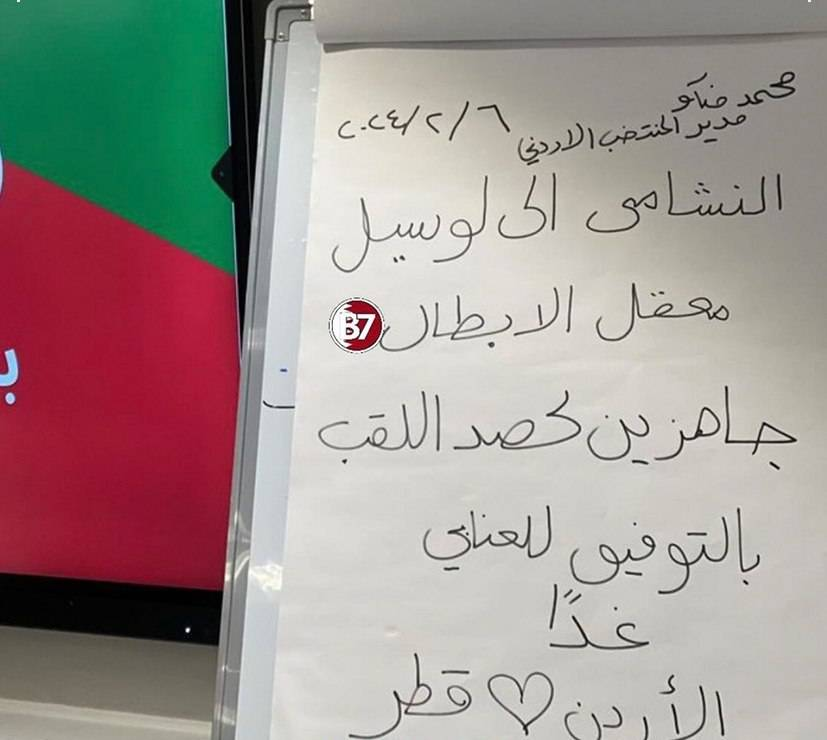 محمد ضاكو
مدير المنتخب الاردني
٢٠٢٤/٢/٦
النشامى الى لوسيل
معقل الابطال
B7
جاهزين لحصد اللقب
بالتوفيق للعنابي
غدًا
الأردن ♡ قطر